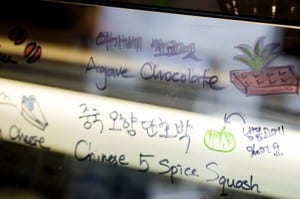 아가베 초코렛
Agave Chocolate
중국 오향 단호박
Cheese
Chinese 5 Spice Squash
냉장고에
있어요